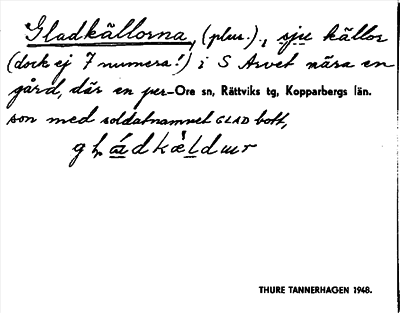 Gladkällorna, (plur.), sju källor
(dock ej 7 numera!) i S Arvet nära en
gård, där en per-Ore sn, Rättviks tg, Kopparbergs län.
son med soldatnamnet GLAD bott,
THURE TANNERHAGEN 1948.